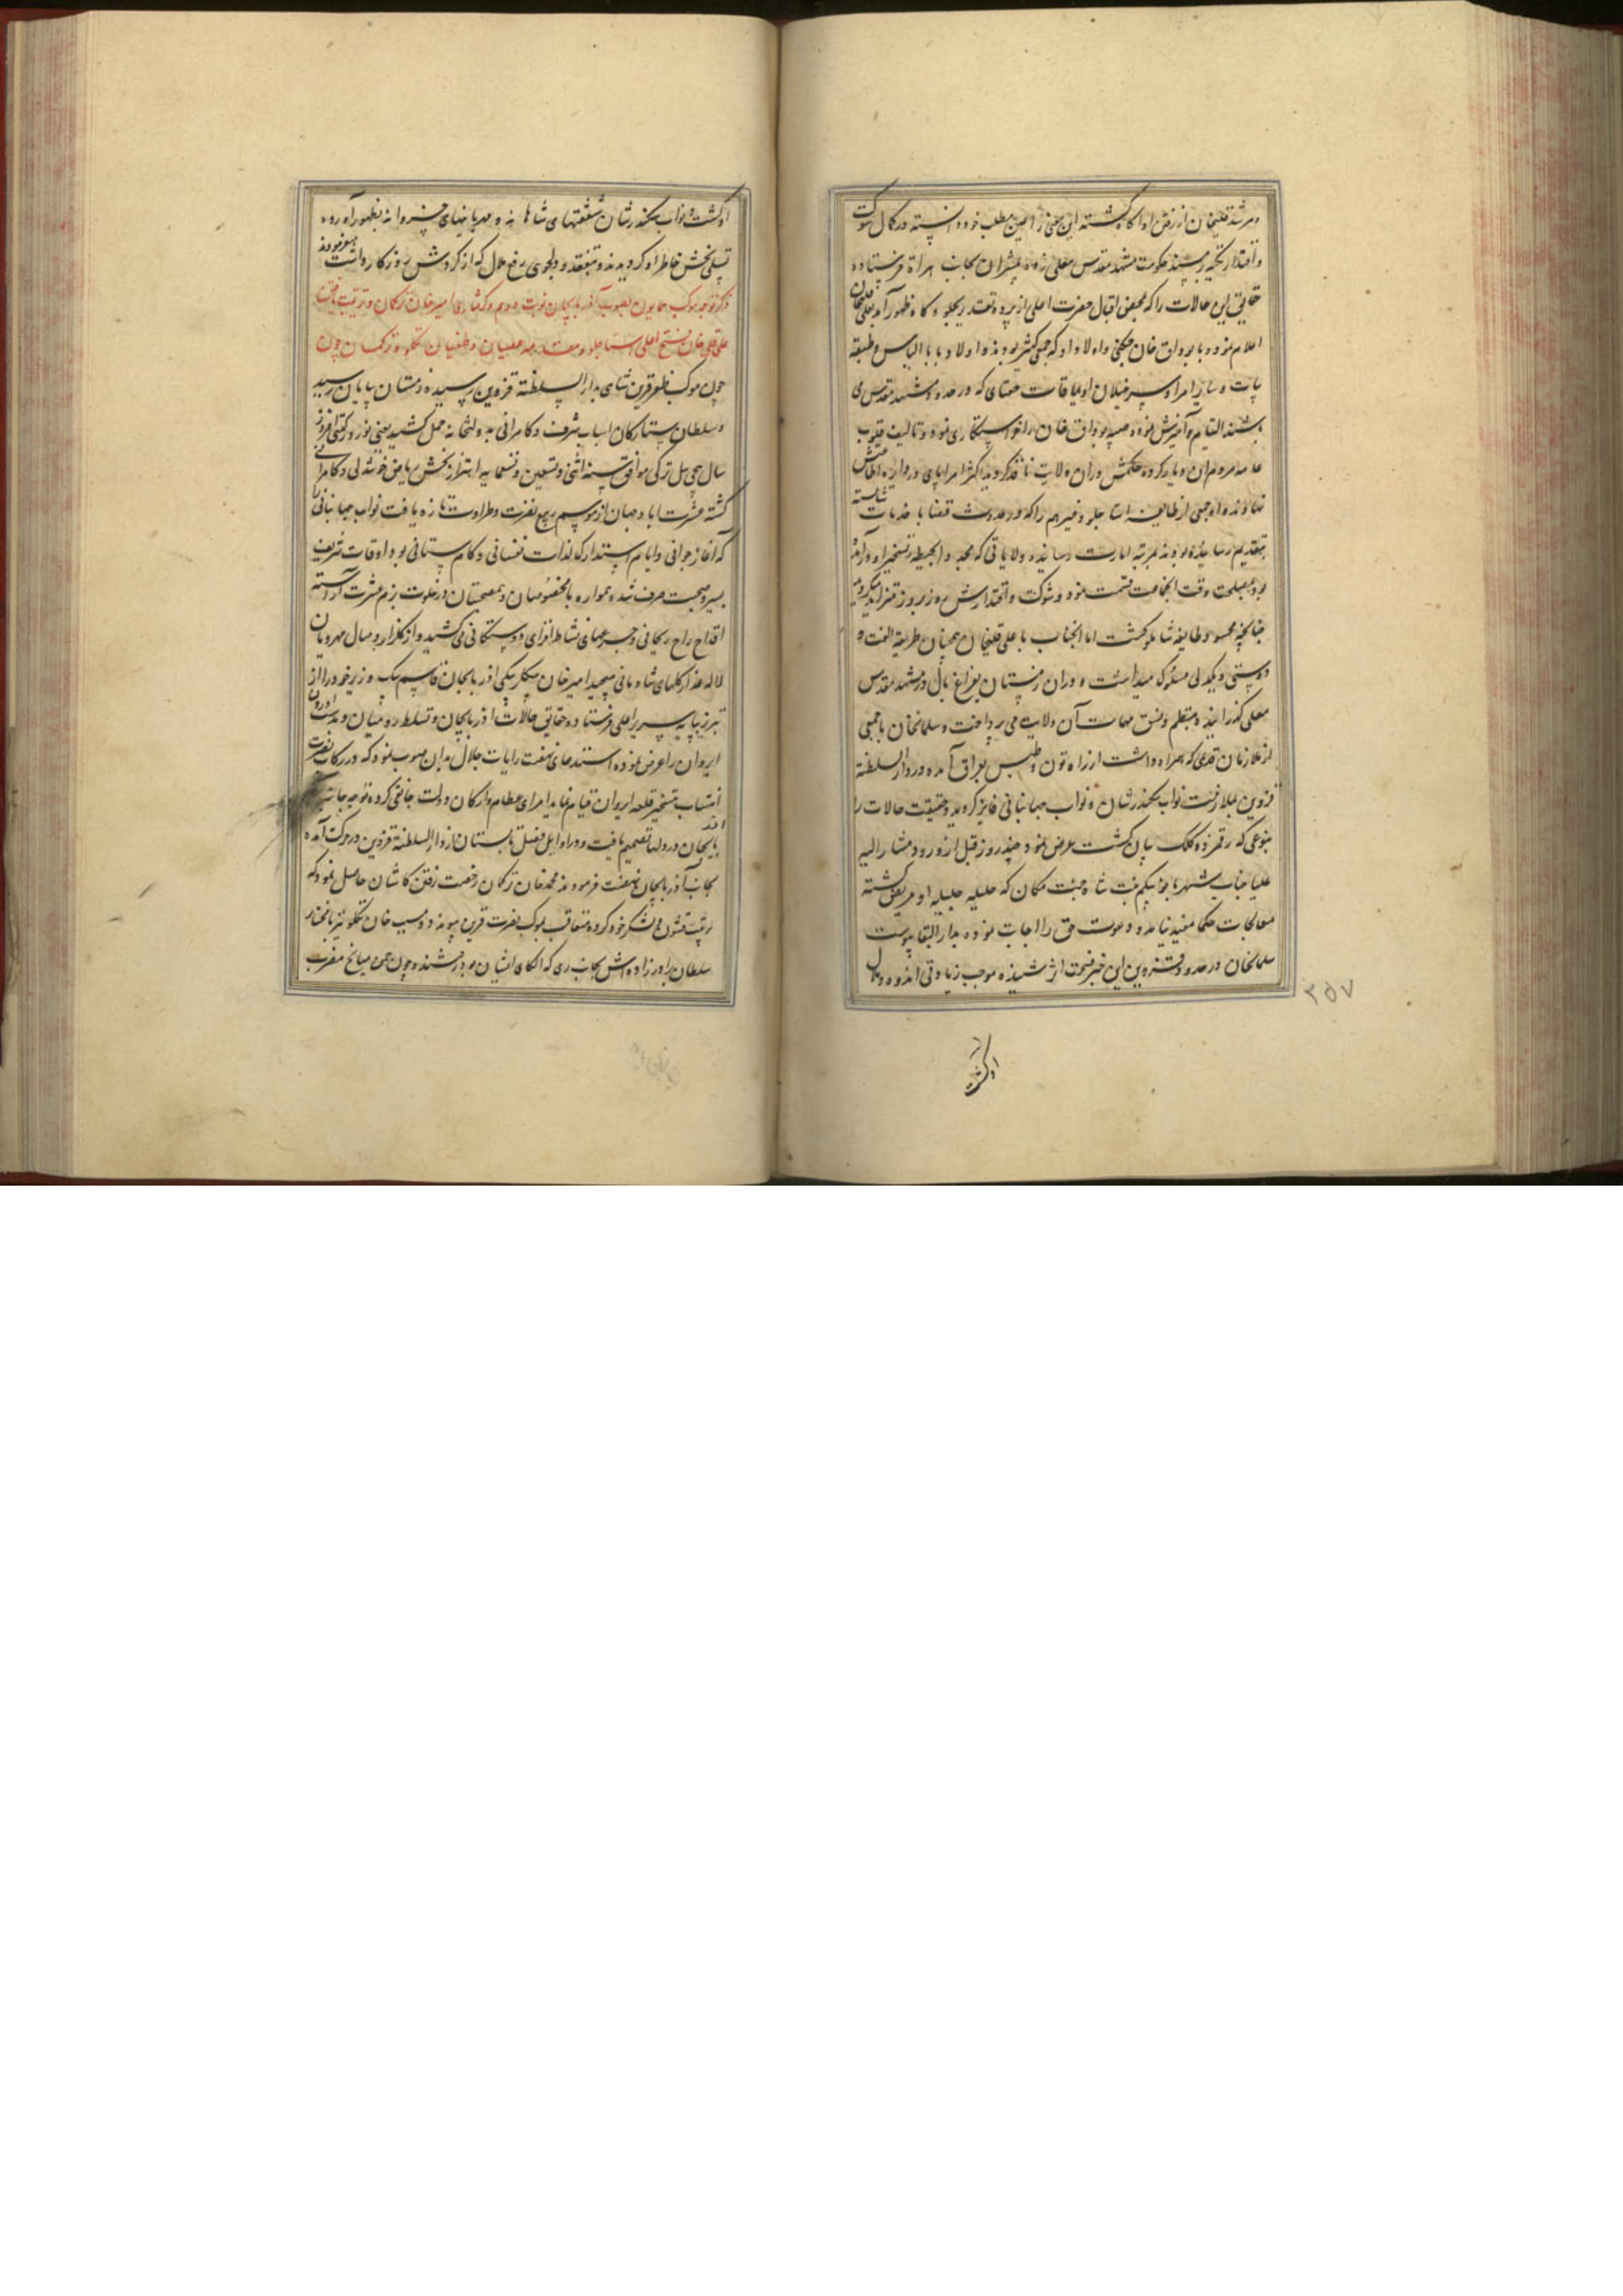 و مرشد قلیخان از رفتن او آگاه گشته این معنی را عین مطلب خود دانسته در کمال شوکت
و اقتدار تکیه بر مسند حکومت مشهد مقدس معلی زده مبشران بجانب هراة فرستاده
حقایق این حالات را که بمحض اقبال حضرت اعلی از پرده تقدیر بجلوه گاه ظهور آمد بعلی قلیخان
اعلام نمود و با بوداق خان چکنی و اولاد او که جمعی کثیر بودند و اولاد بابا الیاس و طبقه
بیات و سایر امرا و سرخیلان اویماقات جغتای که در حدود مشهد مقدس می
باشند التیام و آمیزش نموده صبیه بوداق خان را خواستگاری نمود و تالیف قلوب
عامه مردم ان دیار کرده حکمش دران ولایت نافذ گردید اکثر امرا پای در دایره اطاعتش
نهادند و جمعی از طایفه استاجلو و غیرهم را که در حدوث قضایا خدمات شایسته
بتقدیم رسانیده بودند بمرتبه امارت رسانیده ولایاتی که بحیطه تسخیر او درآمده
بود بمصلحت وقت بانجماعت قسمت نمود و شوکت و اقتدارش روز بروز تزاید میگرفت
چنانچه محسود طایفه شاملو گشت اما انجناب با علی قلیخان همچنان طریقه الفت و
دوستی و یکدلی مسلوک میداشت و دران زمستان بفراغ بال در مشهد مقدس
معلی گذرانیده بنظم و نسق مهمات آن ولایت می پرداخت و سلمانخان با جمعی
از ملازمان قدیمی که همراه داشت از راه تون و طبس بعراق آمده در دار السلطنة
قزوین بملازمت نواب سکندرشان و نواب جهانبانی فایز گردید و حقیقت حالات را
بنوعی که رقم زده کلک بیان گشت عرض نمود و چند روز قبل از ورود مشار الیه
علیا جناب شهربانو بیگم بنت شاه جنت مکان که حلیله جلیله او مریض گشته
معالجات حکما مفید نیامد و دعوت حق را اجابت نموده بدار البقا پیوست
سلمانخان در حدود قزوین این خبر فسحت اثر شنیده موجب زیادتی اندوه و ملال
۳۵۷
او گشت
او گشت و نواب سکندرشان شفقتهای شاهانه و مهربانیهای خسروانه بظهور آورده
تسلی بخش خاطر او گردیدند و بتفقد و دلجوی رفع ملال که از گردش روزگار داشت میفرمودند
ذکر توجه موکب همایون بصوب آذربایجان نوبت دوم و گرفتاری امیرخان ترکمان و تربیت یافتن
علی قلی خان فتح اغلی استاجلو و مقدمه عصیان و طغیان تکلو و ترکمان چون
چون موکب ظفر قرین شاهی بدار السلطنة قزوین رسید زمستان بپایان رسید
و سلطان ستارگان اسباب شرف و کامرانی بدولتخانه حمل کشید یعنی نوروز گیتی افروز
سال پیچی ئیل ترکی موافق سنه اثنی و تسعین و تسعمایه اهتزاز بخش ریاض خوشدلی و کامرانی
گشته عشرت اباد جهان از موسم ربیع نضرت و طراوت تازه یافت نواب جهانبانی را
که آغاز جوانی و ایام استدراک لذات نفسانی و کام ستانی بود اوقات شریف
بسیر و صحبت صرف شده همواره با مخصوصان و همصحبتان در خلوت بزم عشرت آراسته
اقداح راح ریحانی و جرعهای نشاط افزای دوستکانی می کشید و از گلزار وصال مهرویان
لاله عذار گلهای شادمانی میچید امیر خان بیگلر بیگی اذربایجان قاسم بیک وزیر خود را از
تبریز بپایه سریر اعلی فرستاده حقایق حالات اذربایجان و تسلط رومیان
ایروان را عرض نموده استدعای نهضت رایات جلال بدان صوب نمود که در رکاب نصرت
انتساب بتسخیر قلعه ایروان قیام نماید امرای عظام و ارکان دولت جانقی کرده توجه جانب
اذربایجان در دلها تصمیم یافت و در اوایل فصل تابستان از دار السلطنة قزوین در حرکت آمده
بجانب آذربایجان نهضت فرمودند محمدخان ترکمان رخصت رفتن کاشان حاصل نمود که
ترتیب قشون و لشکر خود کرده متعاقب بموکب نصرت قرین پیوندد و مسیب خان تکلو نیز با مختار
سلطان برادر زاده اش بجانب ری که الکای ایشان بود رفتند و چون همیان سانح مقرب